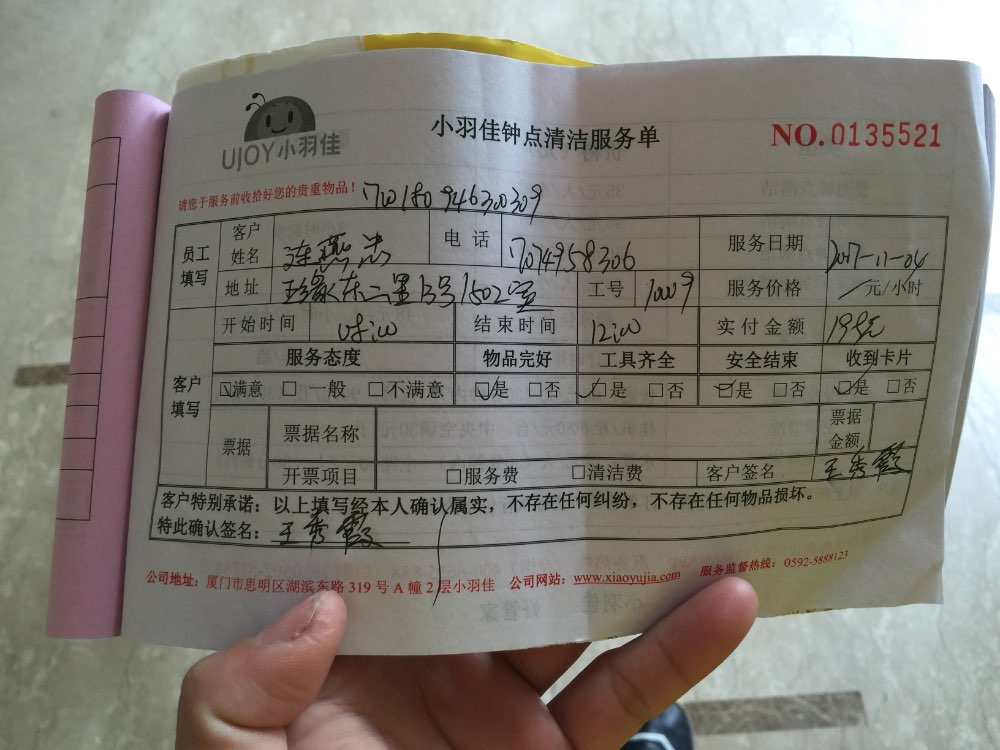 UJOY小羽佳
小羽佳钟点清洁服务单
NO.0135521
请您于服务前收拾好您的贵重物品！
员工填写 客户姓名 连燕 电话 服务日期 2017-11-04
地址 东二里 号1502室 工号 10009 服务价格 / 元/小时
客户填写 开始时间 08:00 结束时间 12:00 实付金额
服务态度 物品完好 工具齐全 安全结束 收到卡片
☑满意 □ 一般 □不满意 ☑是 □否 ☑是 □否 ☑是 □否 ☑是 □否
票据 票据名称 票据金额
开票项目 □服务费 □清洁费 客户签名 王秀霞
客户特别承诺：以上填写经本人确认属实，不存在任何纠纷，不存在任何物品损坏。
特此确认签名：王秀霞
公司地址：厦门市思明区湖滨东路 319 号 A 幢 2 层小羽佳 公司网站：www.xiaoyujia.com 服务监督热线：0592-5888123